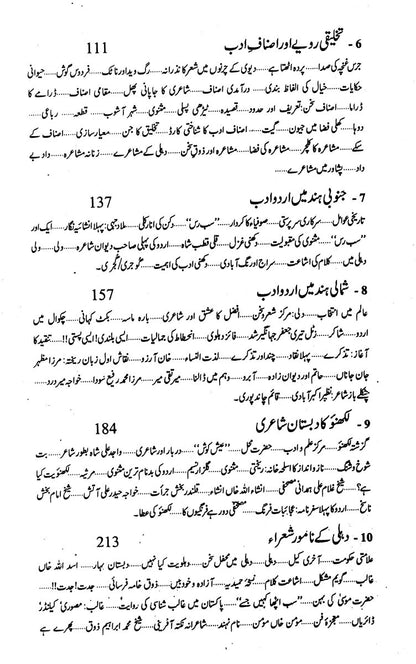 6 - تخلیقی رویے اور اصنافِ ادب 111
جرس غنچہ کی صدا ..... پردہ اٹھتا ہے ..... دیوی کے چرنوں میں شعر کا نذرانہ ..... رگ وید اور ناٹک ..... فردوس گوش ..... حیوانی
حکایات ..... خیال کی الفاظ بندی ..... درآمدی اصناف ..... شاعری کا جاپانی پھل ..... مقامی اصناف ..... ڈرامے کا
ڈراما ..... اصناف سخن: تعریف اور حدود ..... قصیدہ ..... ٹیڑھی پسلی ..... مثنوی ..... شہر آشوب ..... قطعہ ..... رباعی .....
دوہا ..... کھلی فضا میں جیون ..... گیت ..... اصناف ادب کا شناختی کارڈ ..... تخلیق کا جن ..... معیار سازی ..... اصناف کے
سکے ..... مشاعرہ کا کلچر ..... مشاعرہ کی فضا ..... مشاعرہ اور ذوق سخن ..... دہلی کے مشاعرے ..... زنانہ مشاعرہ ..... داد بے
داد ..... پشاور میں مشاعرے
7 - جنوبی ہند میں اردو ادب 137
تاریخی عوامل ..... سرکاری سرپرستی ..... صوفیاء کا کردار ..... "سب رس" ..... دکن کی انارکلی ..... ملا وجہی: پہلا انشائیہ نگار ..... ایک اور
"سب رس" ..... مثنوی کی مقبولیت ..... دکھنی غزل ..... قلی قطب شاہ ..... اردو کی پہلی صاحب دیوان شاعرہ ..... ولی ..... ولی
دہلی میں ..... کلام کی اشاعت ..... سراج اورنگ آبادی ..... دکھنی ادب کی اہمیت ..... گوجری/ گجری۔
8 - شمالی ہند میں اردو ادب 157
عالم میں انتخاب ..... دلی: مرکز شعر و سخن ..... افضل کا عشق اور شاعری ..... بارہ ماسہ ..... بکٹ کہانی ..... چکوال میں
اردو ..... شاکر ..... زٹل تیری جعفر جہانگیر شد ..... فائز دہلوی ..... انحطاط کی جمالیات ..... ایسی بلندی! ایسی پستی!! ..... تنقید کا
آغاز: تذکرے ..... پہلا نقاد ..... چند اور تذکرے ..... لذت النساء ..... خان آرزو ..... نقاش اول زبان ریختہ: مرزا مظہر
جان جاناں ..... حاتم اور دیوان زادہ ..... آبرو ..... وہم میں ڈالنا ..... میر تقی میر ..... مرزا محمد رفیع سودا ..... خواجہ میر درد .....
چٹکلے باز شاعر: نظیر اکبر آبادی ..... قائم چاند پوری۔
9 - لکھنؤ کا دبستان شاعری 184
گزشتہ لکھنؤ ..... مرکز علم و ادب ..... حضرت محل ..... "عیش کوش" ..... دربار اور شاعری ..... واجد علی شاہ بطور شاعر ..... بت
شوخ و شنگ ..... ناز و انداز کا اسلحہ خانہ: ریختی ..... مثنوی ..... گلزار نسیم ..... اردو کی بدنام ترین مثنوی ..... مرثیہ ..... لکھنویت کیا
ہے؟ ..... شیخ غلام علی ہمدانی مصحفی ..... انشاء اللہ خاں انشاء ..... قلندر بخش جرأت ..... خواجہ حیدر علی آتش ..... شیخ امام بخش
ناسخ ..... اردو کا پہلا سفرنامہ: عجائبات فرنگ ..... مصحفی دور ہے فرنگیوں کا ..... لکھنؤ کی عطا۔
10 - دہلی کے نامور شعراء 213
علامتی حکومت ..... آخری کیل ..... دہلی میں محفل سخن ..... دہلویت کیا نہیں ..... دبستان بہار ..... اسد اللہ خاں
غالب ..... گویم مشکل ..... اشاعت کلام ..... نسخۂ حمیدیہ ..... آزادہ و خود بیں ..... ذوق خامہ فرسائی ..... جدت! جدت!! .....
حضرت موسیٰ کی بہن ..... "سب اچھا کہیں جسے" ..... پاکستان میں غالب شناسی کی روایت ..... غالب: مصوری/ کیلنڈر/
ڈائریاں ..... معجزۂ فن ..... مومن خاں مومن ..... نام نہند ..... شاعرانہ نکتہ آفرینی ..... شیخ محمد ابراہیم ذوق ..... پھرے ہے